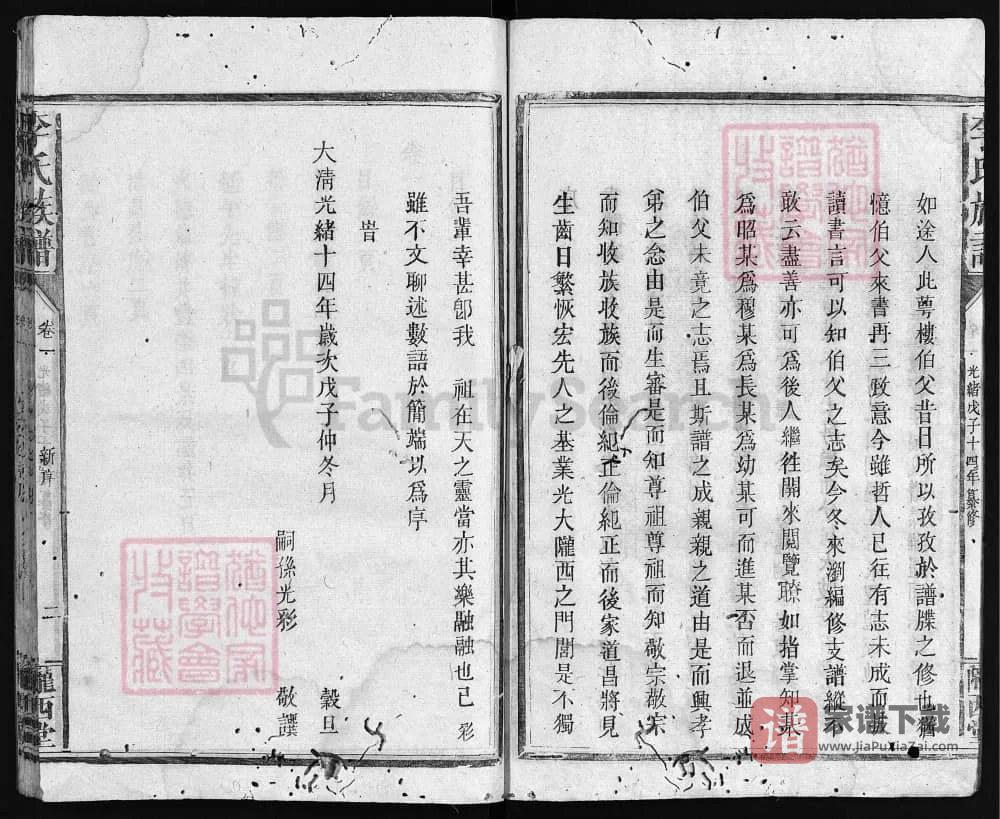 如途人此蕚樓伯父昔日所以孜孜於譜牒之修也猶
憶伯父來書再三致意今雖哲人已往有志未成而披
讀書言可以知伯父之志矣今冬來瀏編修支譜縱不
敢云盡善亦可為後人繼徃開來閱覽瞭如指掌知某
為昭某為穆某為長某為幼某可而進某否而退並成
伯父未竟之志焉且斯譜之成親親之道由是而興孝
弟之念由是而生審是而知尊祖尊祖而知敬宗敬宗
而知收族收族而後倫紀正倫紀正而後家道昌將見
生齒日繁恢宏先人之基業光大隴西之門閭是不獨
吾輩幸甚卽我 祖在天之靈當亦其樂融融也已 彩
雖不文聊述數語於簡端以為序
旹
大清光緒十四年歲次戊子仲冬月 穀旦
嗣孫光彩 敬譔
李氏族譜
卷一
光緒戊子十四年纂修
李氏族譜
卷一
新序
二
隴西堂
FamilySearch
譜
家谱下载
www.JiaPuXiaZai.com